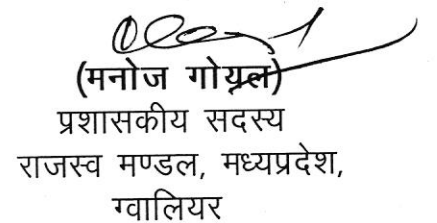 (मनोज गोयल)
प्रशासकीय सदस्य
राजस्व मण्डल, मध्यप्रदेश,
ग्वालियर